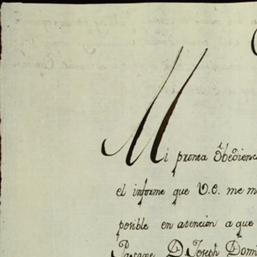 Mi pronta Obedienc
el informe que V.E. me m
posible en atencion a que
D. Joseph Domi